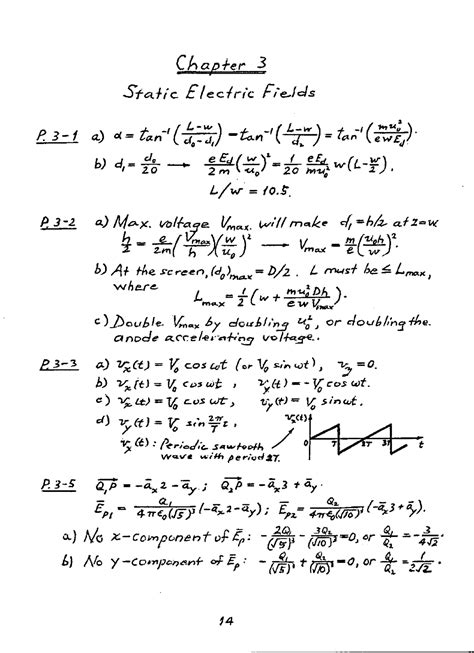 Chapter 3
Static Electric Fields
P. 3-1 a) α = tan⁻¹((L-w)/(d₀-d₁)) = tan⁻¹((L-w)/d₂) = tan⁻¹(mu₀²/(ewE_d)).
b) d₁ = d₀/20 → (eE_d/2m)(w/u₀)² = (1/20)(eE_d/mu₀²)w(L-w/2),
L/w = 10.5.
P. 3-2 a) Max. voltage Vmax. will make d₁ = h/2 at z=w
h/2 = (e/2m)(Vmax/h)(w/u₀)² → Vmax = (m/e)(u₀h/w)².
b) At the screen, (d₀)max = D/2. L must be ≤ Lmax,
where
Lmax = ½(w + mu₀²Dh/(ewVmax)).
c) Double Vmax by doubling u₀², or doubling the
anode accelerating voltage.
P. 3-3 a) vₓ(t) = V₀ cos ωt (or V₀ sin ωt), v_y = 0.
b) vₓ(t) = V₀ cos ωt, v_y(t) = -V₀ cos ωt.
c) vₓ(t) = V₀ cos ωt, v_y(t) = V₀ sin ωt.
d) v_y(t) = V₀ sin (2π/T) t,
vₓ(t): Periodic sawtooth
wave with period 2T.
vₓ(t)
0 T 2T 3T t
P. 3-5 Q₁P = -āₓ2 - ā_y ; Q₂P = -āₓ3 + ā_y.
Ē_P1 = Q₁/(4πε₀(√5)³) (-āₓ2 - ā_y); Ē_P2 = Q₂/(4πε₀(√10)³) (-āₓ3 + ā_y).
a) No x-component of Ē_P: -2Q₁/(√5)³ - 3Q₂/(√10)³ = 0, or Q₁/Q₂ = -3/(4√2).
b) No y-component of Ē_P: -Q₁/(√5)³ + Q₂/(√10)³ = 0, or Q₁/Q₂ = 1/(2√2).
14